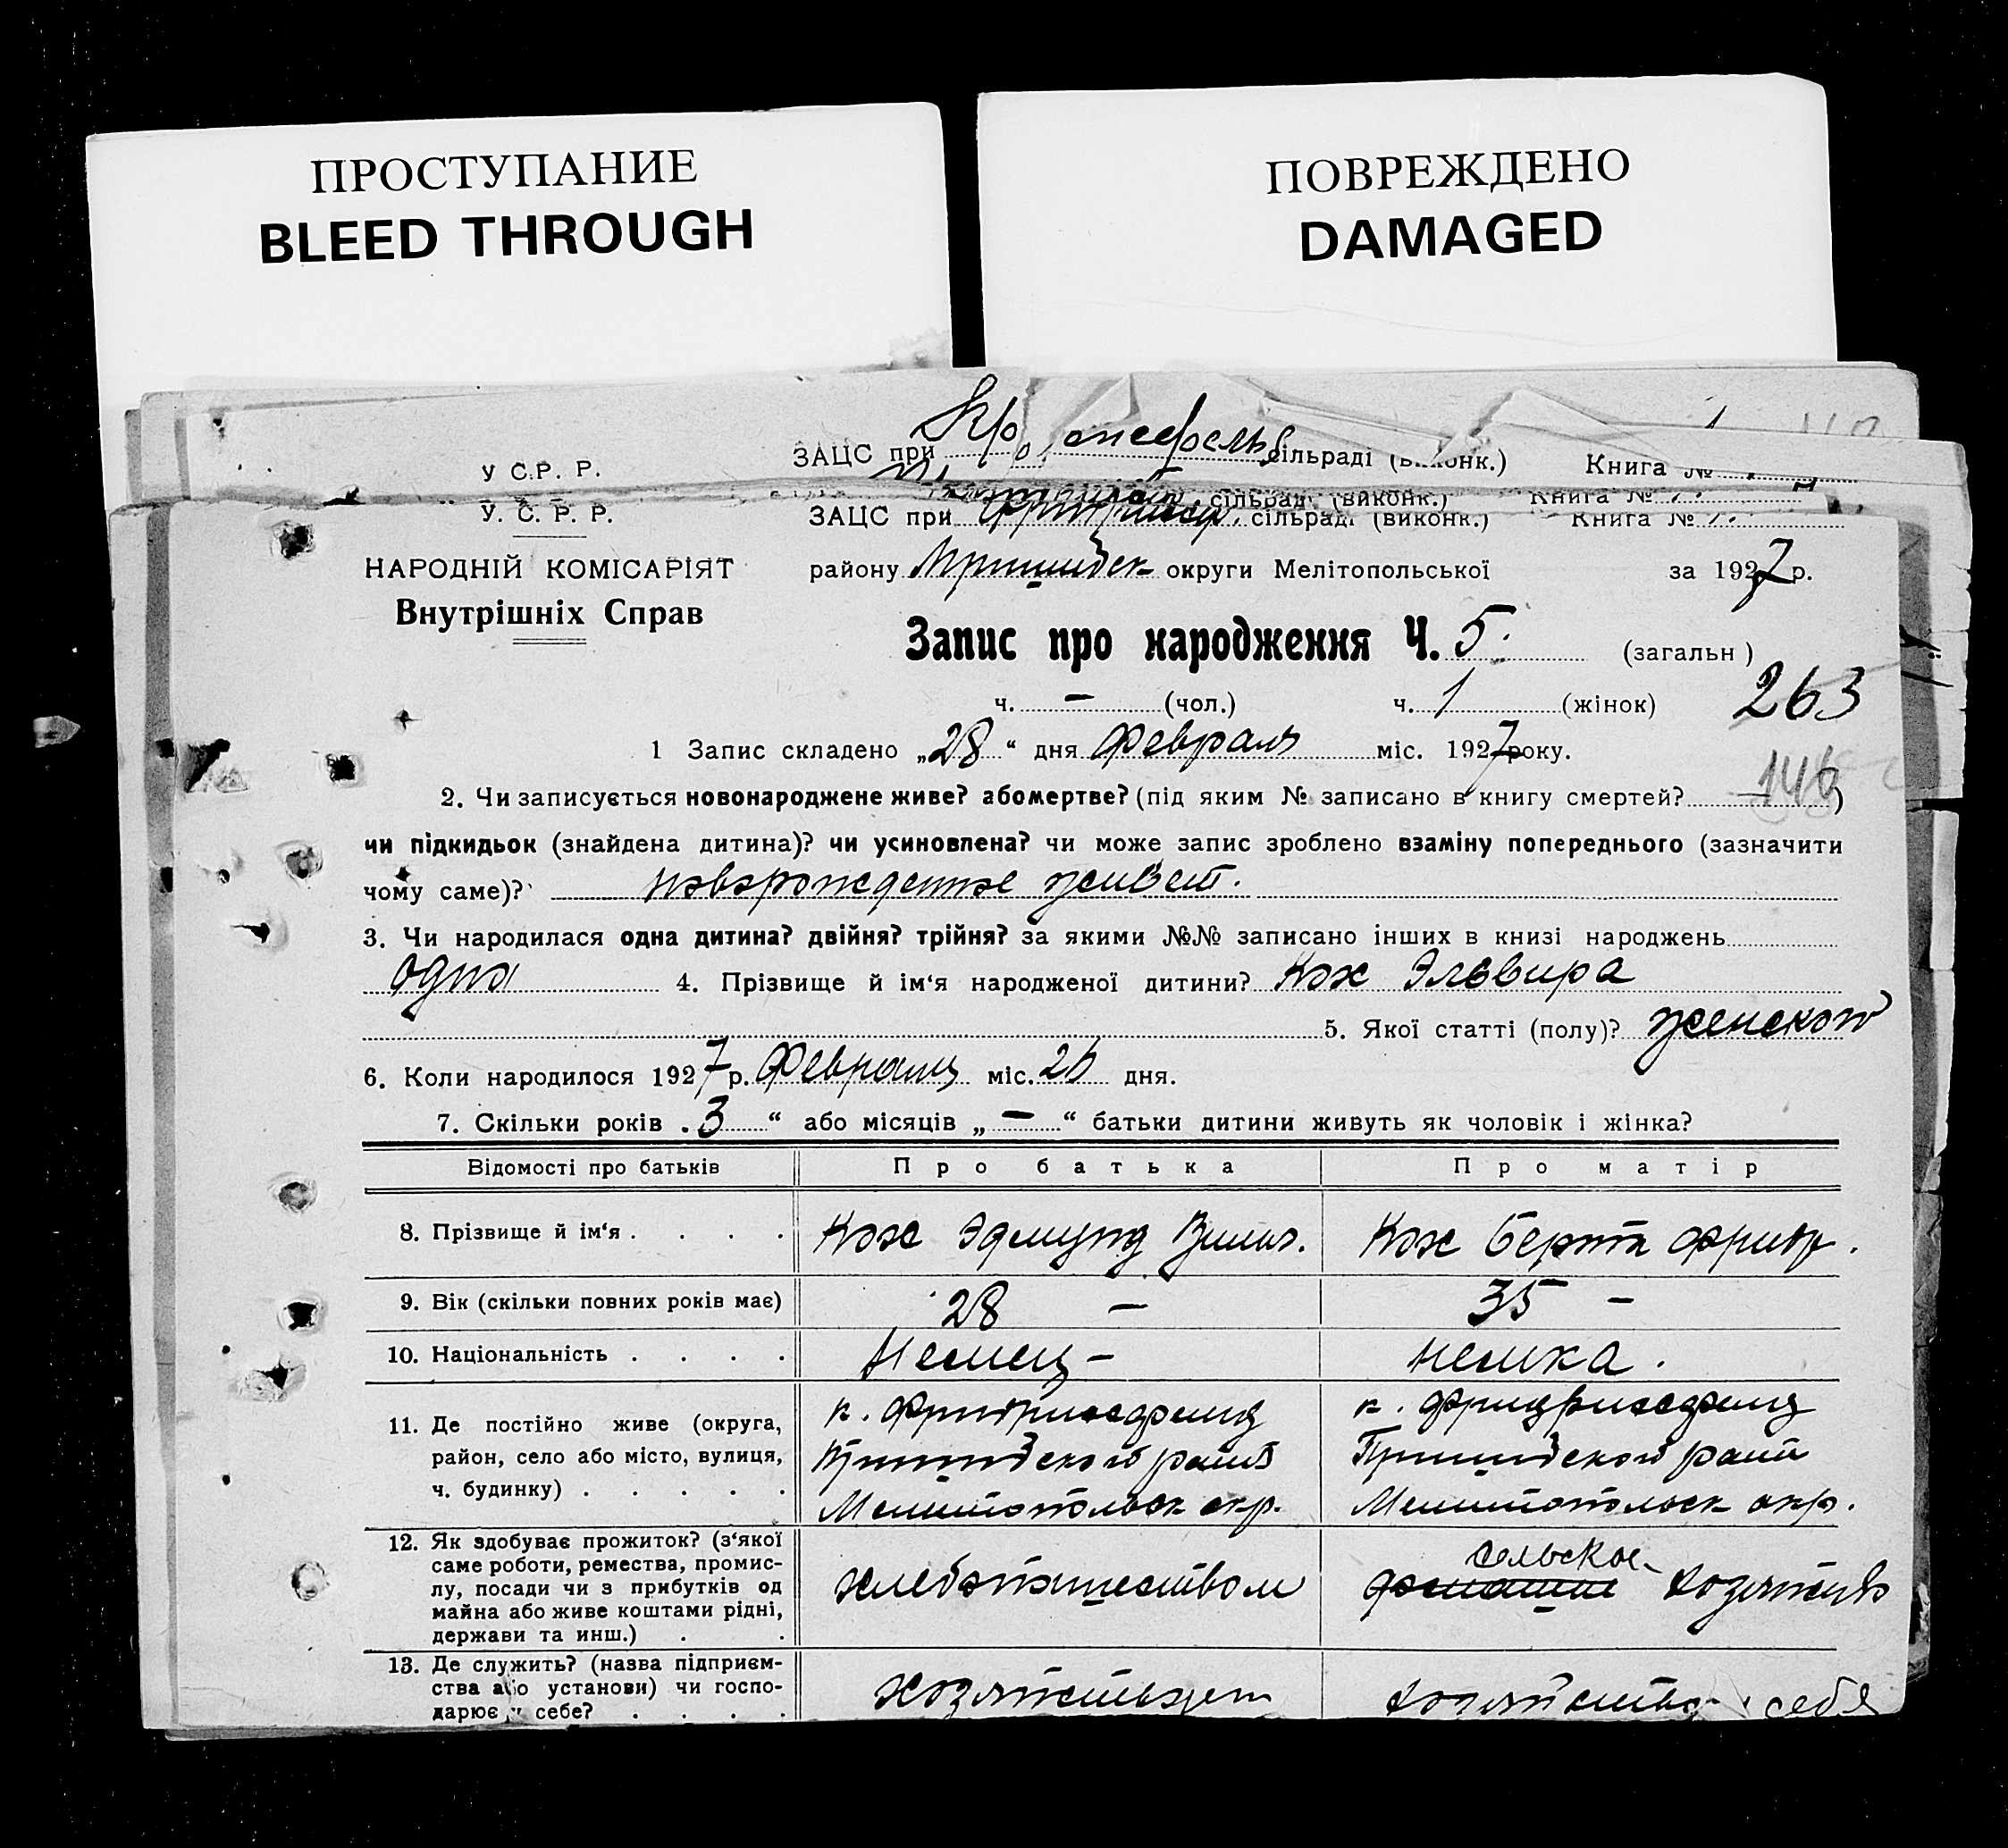 ПРОСТУПАНИЕ
BLEED THROUGH
ПОВРЕЖДЕНО
DAMAGED
У С.Р. Р. ЗАЦС при сільраді (виконк.) Книга №
сільраді (виконк.) Книга №
У. С. Р. Р. ЗАЦС при сільраді (виконк.) Книга № 1.
НАРОДНІЙ КОМІСАРІЯТ району Пришибск округи Мелітопольської за 1927 р.
Внутрішніх Справ
Запис про народження Ч. 5. (загальн)
ч. — (чол.) ч. 1 (жінок) 263
1 Запис складено „28“ дня Февраля міс. 1927 року.
2. Чи записується новонароджене живе? або мертве? (під яким № записано в книгу смертей? — ) 146
чи підкидьок (знайдена дитина)? чи усиновлена? чи може запис зроблено взаміну попереднього (зазначити
чому саме)? новорожденное живет.
3. Чи народилася одна дитина? двійня? трійня? за якими №№ записано інших в книзі народжень
одна 4. Прізвище й ім‘я народженої дитини? Кох Эльвира
5. Якої статті (полу)? женского
6. Коли народилося 1927 р. Февраля міс. 26 дня.
7. Скільки років „3“ або місяців „—“ батьки дитини живуть як чоловік і жінка?
Відомості про батьків Про батька Про матір
8. Прізвище й ім‘я . . . . Кох Эдмунд Вильг. Кох Берта Фридр.
9. Вік (скільки повних років має) 28 — 35 —
10. Національність . . . . Немец — немка.
11. Де постійно живе (округа, к. Фридрихсфельд к. Фридрихсфельд
район, село або місто, вулиця, Пришибского района Пришибского района
ч. будинку) . . . . . Мелитопольск окр. Мелитопольск окр.
12. Як здобуває прожиток? (з‘якої
саме роботи, ремества, промис- сельское
лу, посади чи з прибутків од хлебопашеством домашне хозяйство
майна або живе коштами рідні,
держави та инш.) . .
13. Де служить? (назва підприєм-
ства або установи) чи госпо- хозяйствует хозяйство у себя
дарює у себе? . . . .